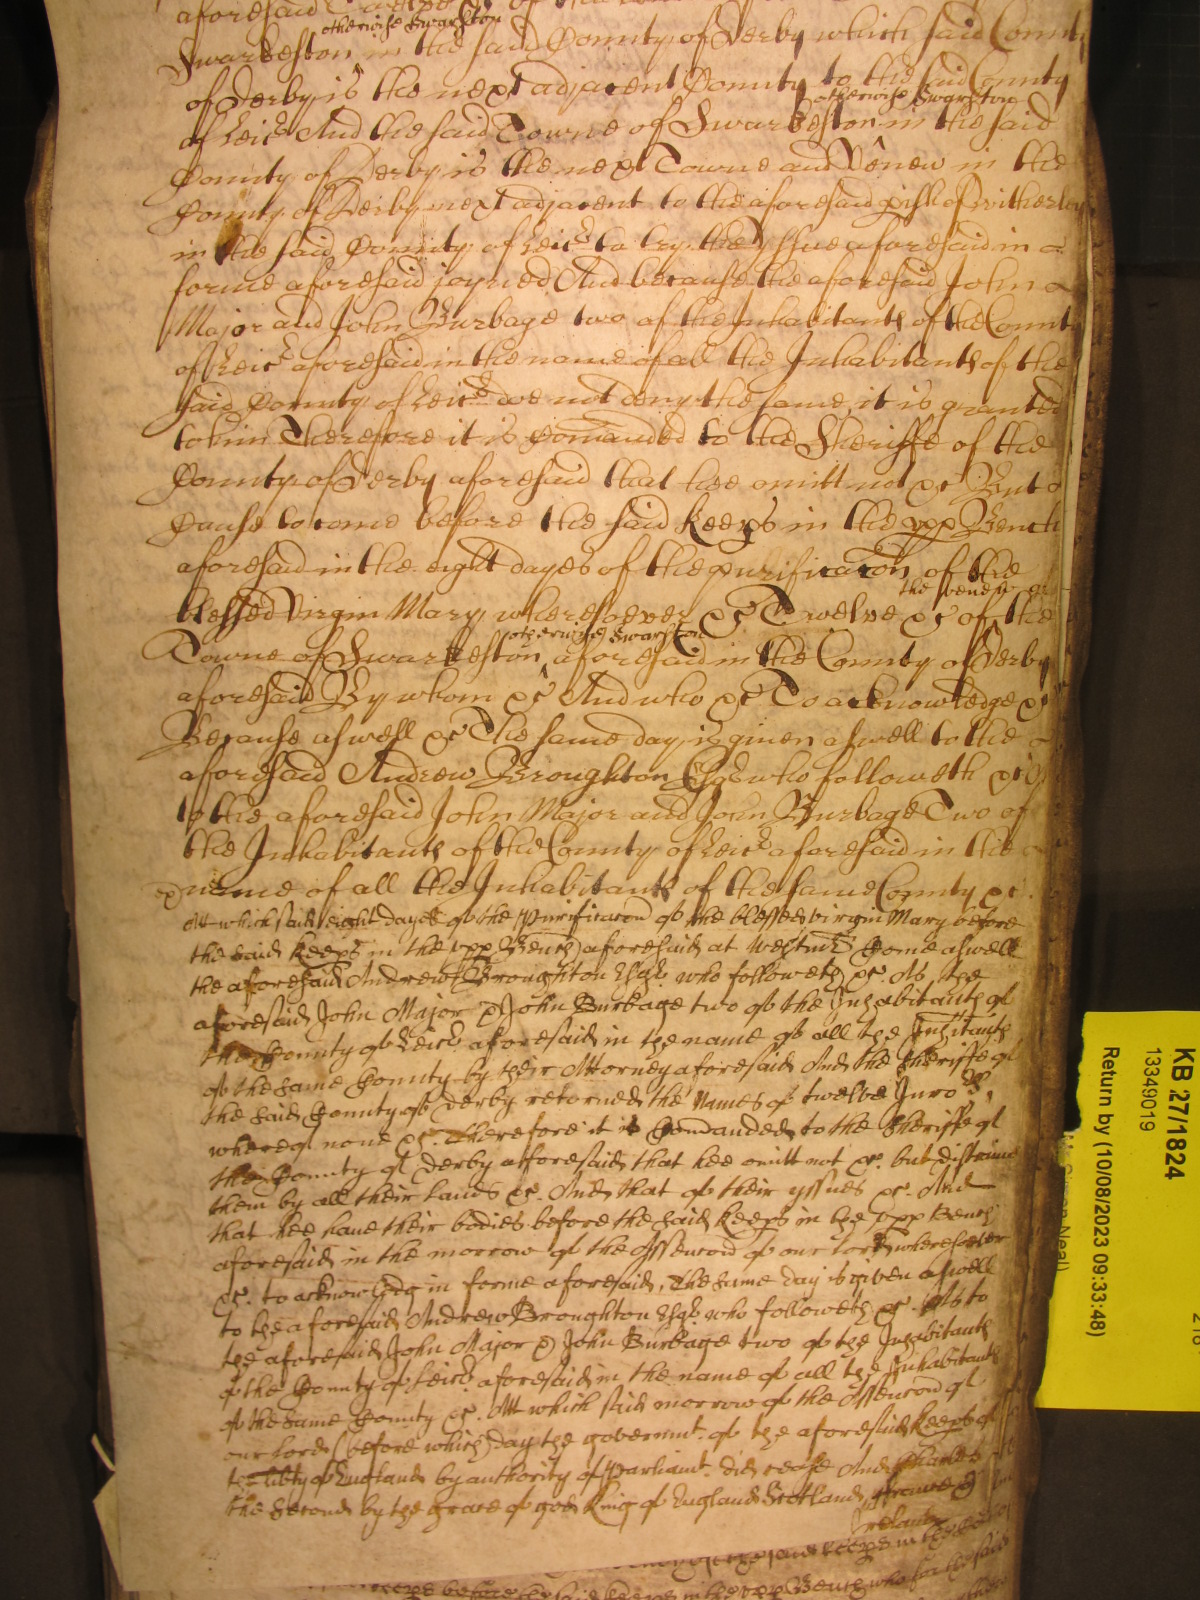 aforesaid
otherwise Swarston
Swarkeston in the said County of Derby which said County
of Derby is the next adjacent County to the said County
otherwise Swarston
of Leicr And the said Towne of Swarkeston in the said
County of Derby is the next Towne and Venew in the
County of Derby next adjacent to the aforesaid pish of Witherley
in the said County of Leicr to try the yssue aforesaid in
forme aforesaid joyned And because the aforesaid John
Major and John Burbage two of the Inhabitants of the County
of Leicr aforesaid in the name of all the Inhabitants of the
said County of Leicr doe not deny the same it is granted
to him Therefore it is Comanded to the Sheriffe of the
County of Derby aforesaid that hee omitt not &c But
Cause to come before the said keeps in the upp Bench
aforesaid in the eight dayes of the purificacon of the
the venew of
blessed Virgin Mary wheresoever &c Twelve &c of the
otherwise Swarston
Towne of Swarkeston aforesaid in the County of Derby
aforesaid By whom &c And who &c To acknowledge &c
Because aswell &c The same day is given aswell to the
aforesaid Andrew Broughton Esqr who followeth &c As
to the aforesaid John Major and John Burbage Two of
the Inhabitants of the County of Leicr aforesaid in the
name of all the Inhabitants of the same County &c.
Att which said eight dayes of the Purificacon of the blessed virgin Mary before
the said keeps in the upp Bench aforesaid at Westmr Come aswell
the aforesaid Andrew Broughton Esqr. who followeth &c. As the
aforesaid John Major & John Burbage two of the Inhabitants of
the County of Leicr aforesaid in the name of all the Inhitants
of the same County by their Attorney aforesaid And the Sheriffe of
the said County of Derby retorned the Names of twelve Juro
whereof none &c. Therefore it is Comanded to the Sheriffe of
the County of Derby aforesaid that hee omitt not &c. but distraine
them by all their lands &c. And that of their yssues &c. And
that hee have their bodies before the said keeps in the upp Bench
aforesaid in the morrow of the Assencon of our lord wheresoever
&c. to acknowledg in forme aforesaid, The same day is given aswell
to the aforesaid Andrew Broughton Esqr. who followeth &c. As to
the aforesaid John Major & John Burbage two of the Inhabitants
of the County of Leicr. aforesaid in the name of all the Inhabitants
of the same County &c. Att which said morrow of the Assencon of
our lord (before which) day the govermt. of the aforesaid keeps of
the libty of England by authority of Parliamt. did cease And Charles
the Second by the grace of god King of England Scotland France &
Ireland
KB 27/1824
13349019
Return by (10/08/2023 09:33:48)